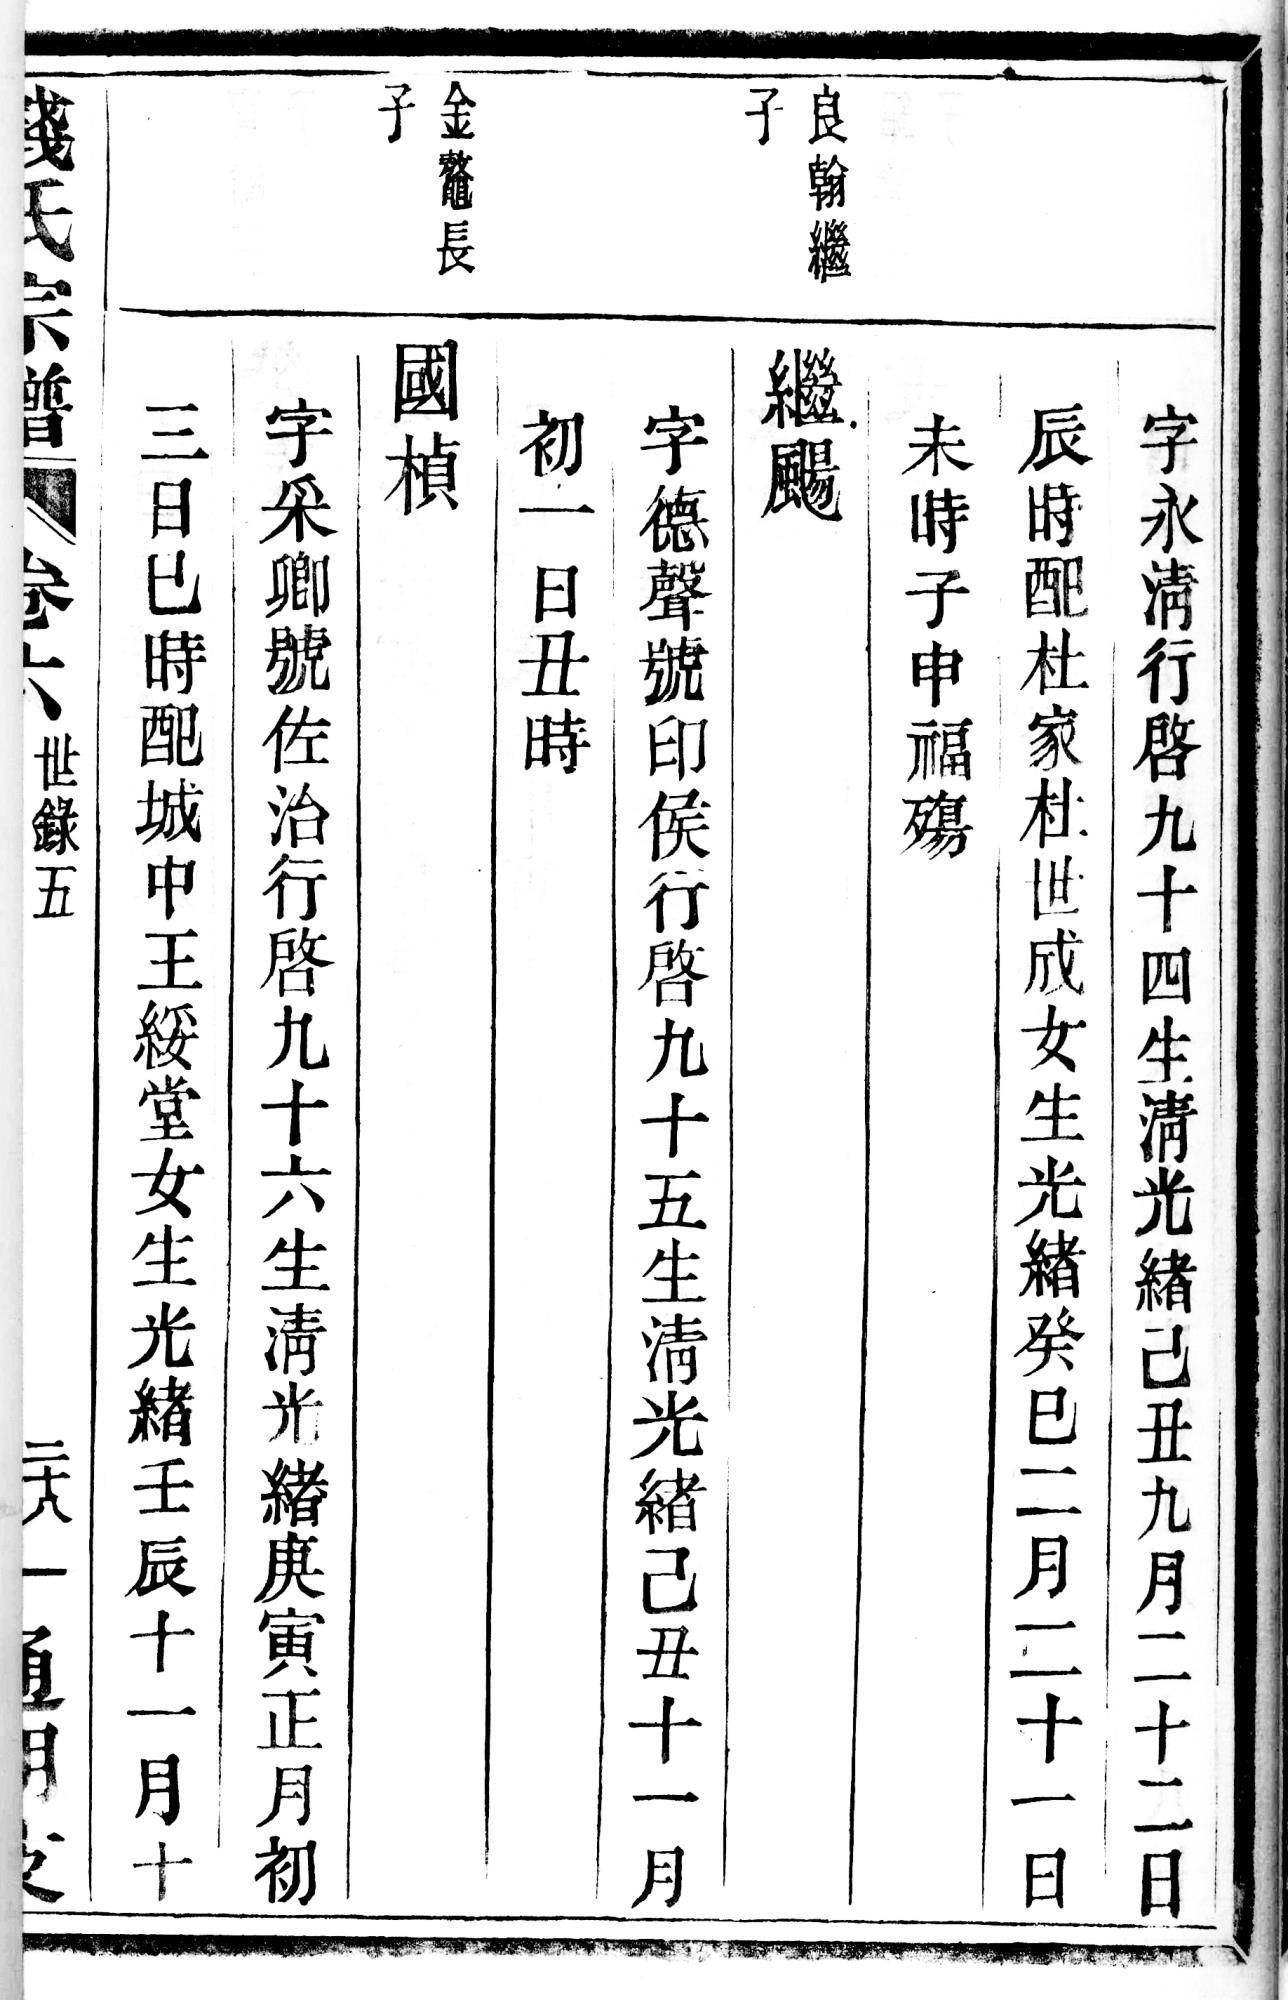 字永淸行啓九十四生淸光緒己丑九月二十二日
辰時配杜家杜世成女生光緒癸巳二月二十一日
未時子申福殤
良翰繼
子
繼颺
字德聲號印侯行啓九十五生淸光緒己丑十一月
初一日丑時
金鼇長
子
國楨
字采卿號佐治行啓九十六生淸光緒庚寅正月初
三日巳時配城中王綏堂女生光緒壬辰十一月十
錢氏宗譜
卷六
世錄五
二十八
通明支